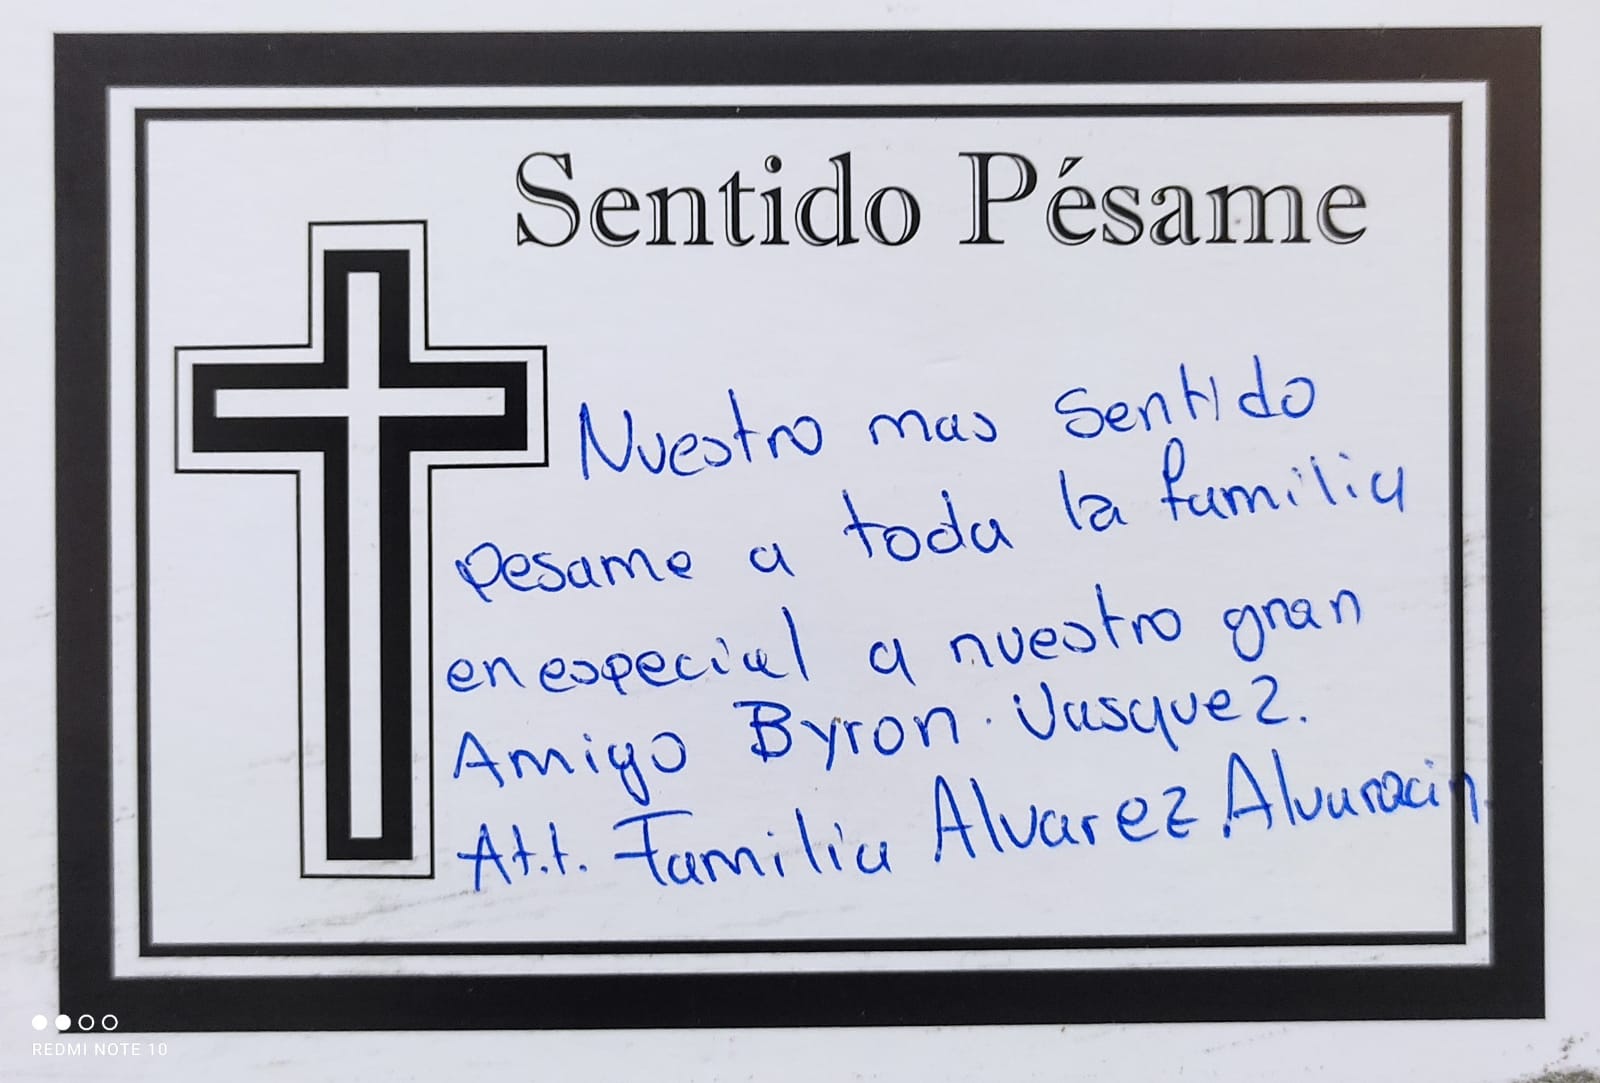 Sentido Pésame
Nuestro mas sentido
pesame a toda la familia
en especial a nuestro gran
Amigo Byron Vasquez.
Att. Familia Alvarez Alvaracin.
REDMI NOTE 10